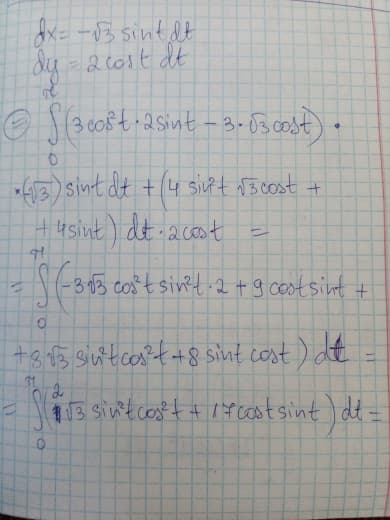 dx = -√3 sint dt
dy = 2 cost dt
= ∫₀^π (3 cos²t · 2 sint - 3 · √3 cost) ·
· (-√3) sint dt + (4 sin²t √3 cost +
+ 4 sint) dt · 2 cost =
= ∫₀^π (-3√3 cos²t sin²t · 2 + 9 cost sint +
+ 8√3 sin²t cos²t + 8 sint cost) dt =
= ∫₀^π (2√3 sin²t cos²t + 17 cost sint) dt =